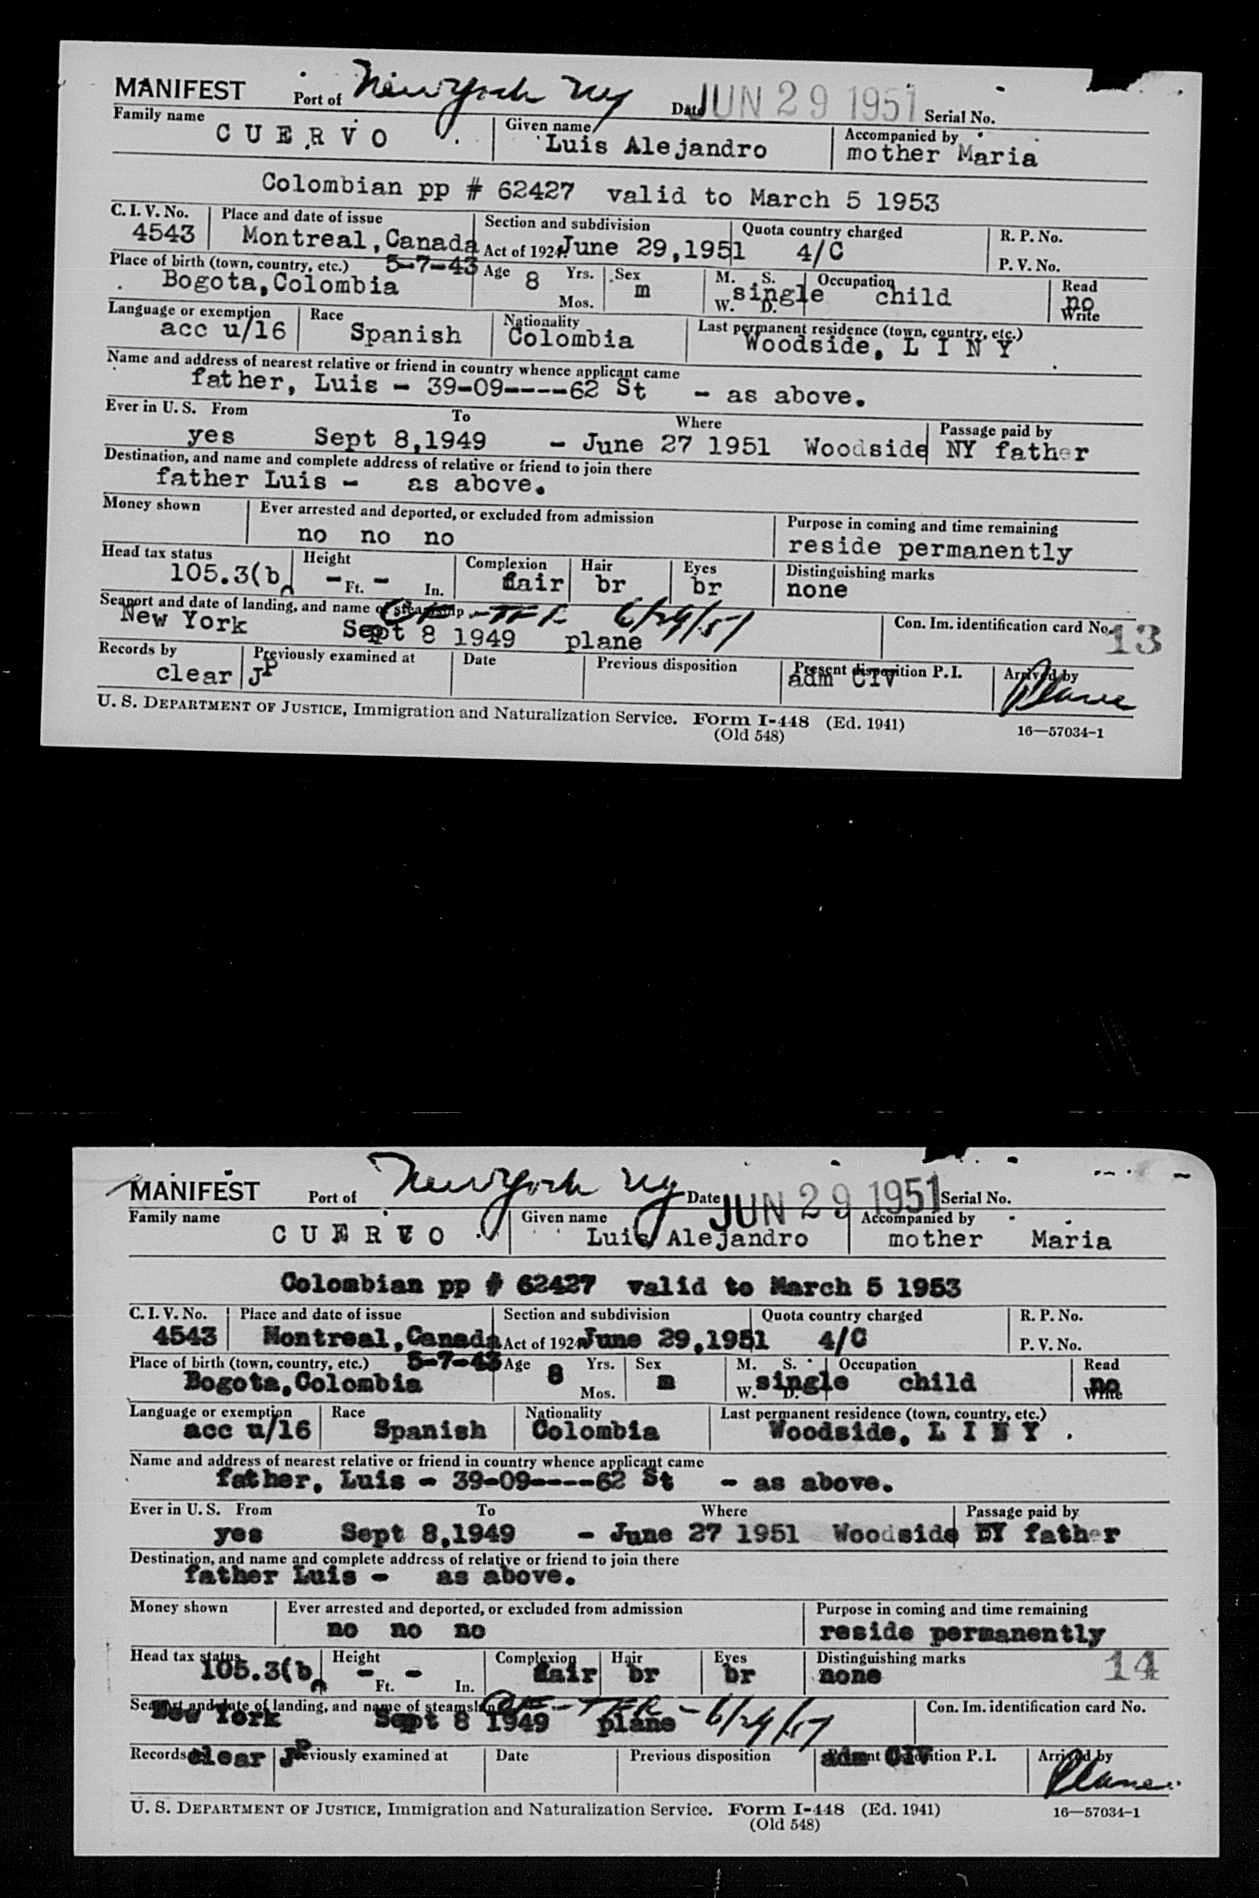 MANIFEST Port of New York NY Date JUN 29 1951 Serial No.
Family name Given name Accompanied by
CUERVO Luis Alejandro mother Maria
Colombian pp # 62427 valid to March 5 1953
C. I. V. No. Place and date of issue Section and subdivision Quota country charged R. P. No.
4543 Montreal, Canada Act of 1924 June 29,1951 4/C P. V. No.
Place of birth (town, country, etc.) 5-7-43 Age 8 Yrs. Sex M. S. Occupation Read
Bogota,Colombia Mos. m W. single D. child no Write
Language or exemption Race Nationality Last permanent residence (town, country, etc.)
acc u/16 Spanish Colombia Woodside, L I N Y
Name and address of nearest relative or friend in country whence applicant came
father, Luis - 39-09----62 St - as above.
Ever in U. S. From To Where Passage paid by
yes Sept 8,1949 - June 27 1951 Woodside NY father
Destination, and name and complete address of relative or friend to join there
father Luis - as above.
Money shown Ever arrested and deported, or excluded from admission Purpose in coming and time remaining
no no no reside permanently
Head tax status Height Complexion Hair Eyes Distinguishing marks
105.3(b - Ft. - In. fair br br none
Seaport and date of landing, and name of steamship 6/29/51 Con. Im. identification card No.
New York Sept 8 1949 plane 13
Records by Previously examined at Date Previous disposition Present disposition P. I. Arrived by
clear JP adm CIV Plane
U. S. DEPARTMENT OF JUSTICE, Immigration and Naturalization Service. Form I-448 (Ed. 1941)
(Old 548) 16—57034-1
MANIFEST Port of New York NY Date JUN 29 1951 Serial No.
Family name Given name Accompanied by
CUERVO Luis Alejandro mother Maria
Colombian pp # 62427 valid to March 5 1953
C. I. V. No. Place and date of issue Section and subdivision Quota country charged R. P. No.
4543 Montreal, Canada Act of 1924 June 29,1951 4/C P. V. No.
Place of birth (town, country, etc.) 5-7-43 Age 8 Yrs. Sex M. S. Occupation Read
Bogota,Colombia Mos. m W. single D. child no Write
Language or exemption Race Nationality Last permanent residence (town, country, etc.)
acc u/16 Spanish Colombia Woodside, L I N Y
Name and address of nearest relative or friend in country whence applicant came
father, Luis - 39-09----62 St - as above.
Ever in U. S. From To Where Passage paid by
yes Sept 8,1949 - June 27 1951 Woodside NY father
Destination, and name and complete address of relative or friend to join there
father Luis - as above.
Money shown Ever arrested and deported, or excluded from admission Purpose in coming and time remaining
no no no reside permanently
Head tax status Height Complexion Hair Eyes Distinguishing marks 14
105.3(b - Ft. - In. fair br br none
Seaport and date of landing, and name of steamship 6/29/51 Con. Im. identification card No.
New York Sept 8 1949 plane
Records by Previously examined at Date Previous disposition Present disposition P. I. Arrived by
clear JP adm CIV Plane
U. S. DEPARTMENT OF JUSTICE, Immigration and Naturalization Service. Form I-448 (Ed. 1941)
(Old 548) 16—57034-1